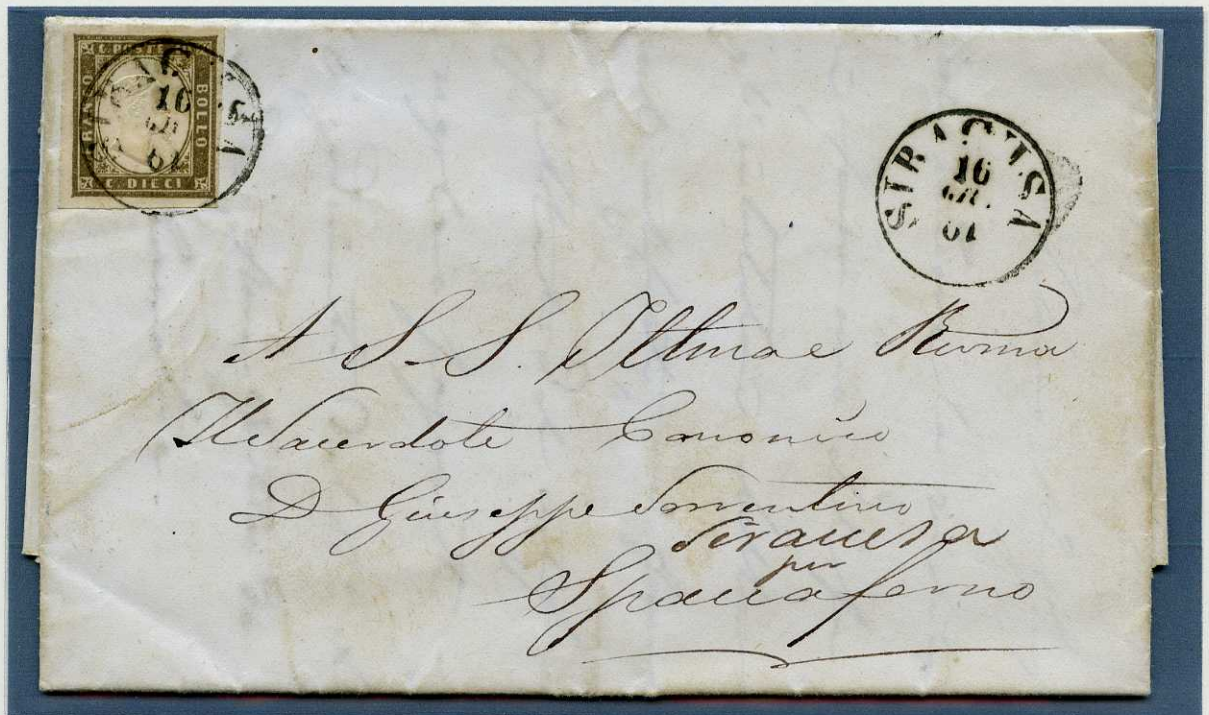 C. POSTE
BOLLO
C. DIECI
SIRACUSA
16
GIU.
61
A S. S. Illma e Revma
Il Sacerdote Canonico
D Giuseppe Sorrentino
Siracusa
per
Spaccaforno